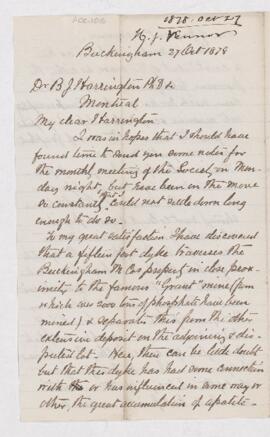 1878. Oct 27
H. G. Vennor
Buckingham 27 Oct 1878
Dr B. J. Harrington Ph D &
Montreal
My dear Harrington
I was in hopes that I should have
found time to send you some notes for
the monthly meeting of the Society, on Mon-
day night, but have been on the move
so constantly that I could not settle down long
enough to do so.
To my great satisfaction I have discovered
that a fifteen foot dyke traverses the
Buckingham M. Cos property in close prox-
imity to the famous "Grant" mine (from
which over 200 tons of phosphate have been
mined) & separates this from the other
extensive deposit on the adjoining & dis-
puted lot. Now, there can be little doubt
but that this dyke has had some connection
with the or has influenced in some way or
other, the great accumulation of apatite-